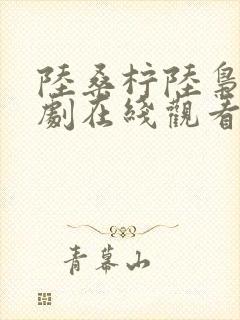 陸桑柠陸梟
劇在綫觀看
青幕山